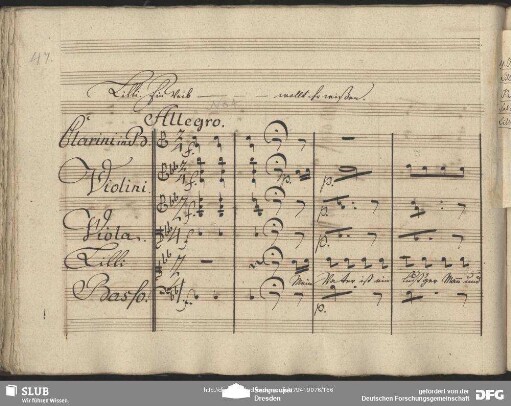 47.
Lilli. Ein Weib — — — wollt ihr wissen.
Allegro.
Clarini in B
Violini.
Viola.
Lilli
Basso.
f.
p.
Mein Vater ist ein
Mann und
SLUB
Wir führen Wissen.
Dresden
gefördert von der
Deutschen Forschungsgemeinschaft
DFG